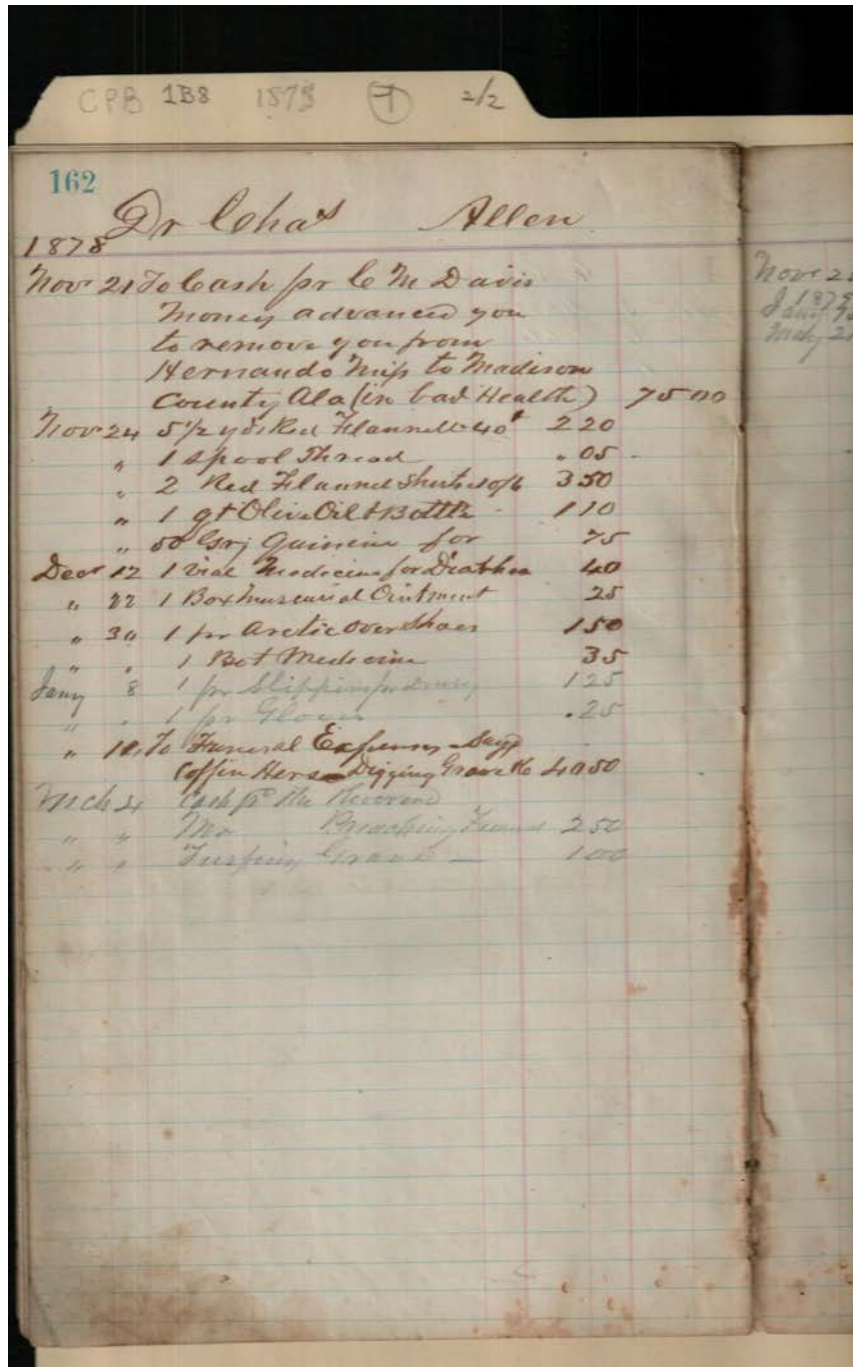 CPB 1B8 1878 7 2/2
162
Dr Chas Allen
1878
Nov 21 To Cash pr C M Davis
Money advanced you
to remove you from
Hernando Miss to Madison
County Ala (in bad Health) 75 00
Nov 24 5 1/2 yds Red Flannell 40 2 20
" 1 Spool Thread .05
" 2 Red Flannel Shirts 3 50
" 1 qt Olive Oil & Bottle 1 10
" 50 Grs Quinine for 75
Decr 12 1 vial Medicine for 40
" 22 1 Box Mercurial Ointment 25
" 30 1 pr Arctic Over Shoes 1 50
" " 1 Bot Medicine 35
Jany 8 1 pr 1 25
" " 1 pr Gloves .25
" 10 To Funeral Expenses
Coffin Herse Digging Grave 50
Mch 4 Cash pd the Reverend
" " Mr Preaching Funeral 2 50
" " Grave 1 00
Nov 2
1879
Jany
May 2